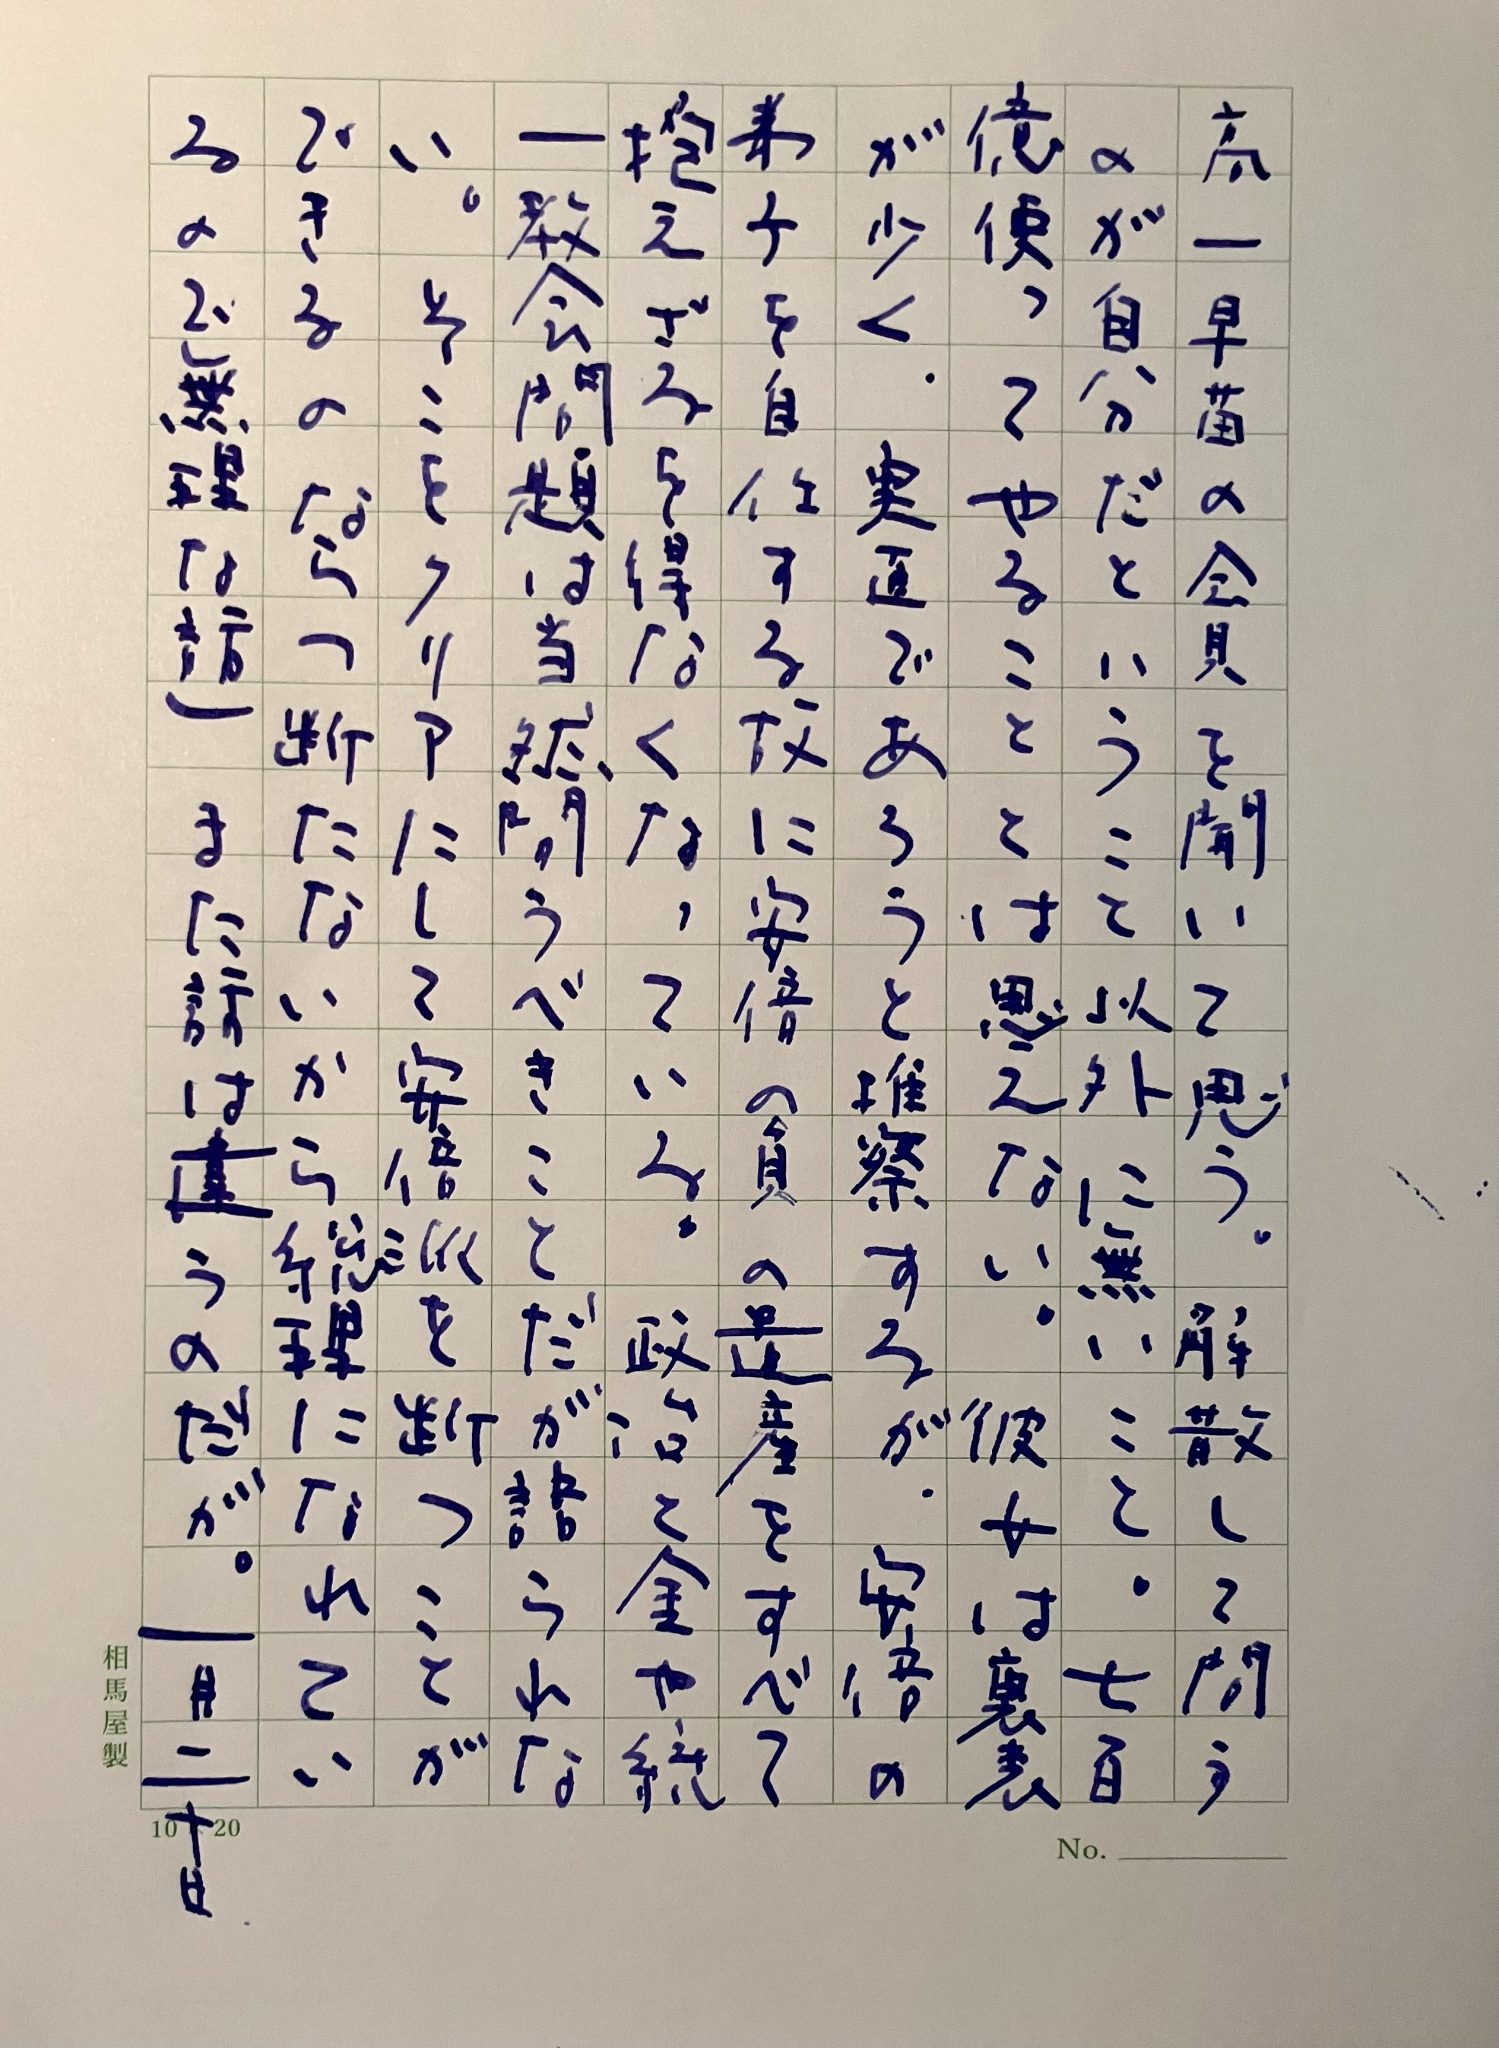 高一早苗の会見を聞いて思う。解散して問う
のが自分だということ以外に無いこと。七百
億使ってやることとは思えない。彼女は裏表
が少く、実直であろうと推察するが、安倍の
弟子を自任する故に安倍の負の遺産をすべて
抱えざるを得なくなっている。政治と金や統
一教会問題は当然、問うべきことだが語られな
い。そこをクリアにして安倍派を断つことが
できるのならつ断たないから総理になれてい
るので無理な話) また話は違うのだが。一月二十日
相馬屋製
10 × 20
No.